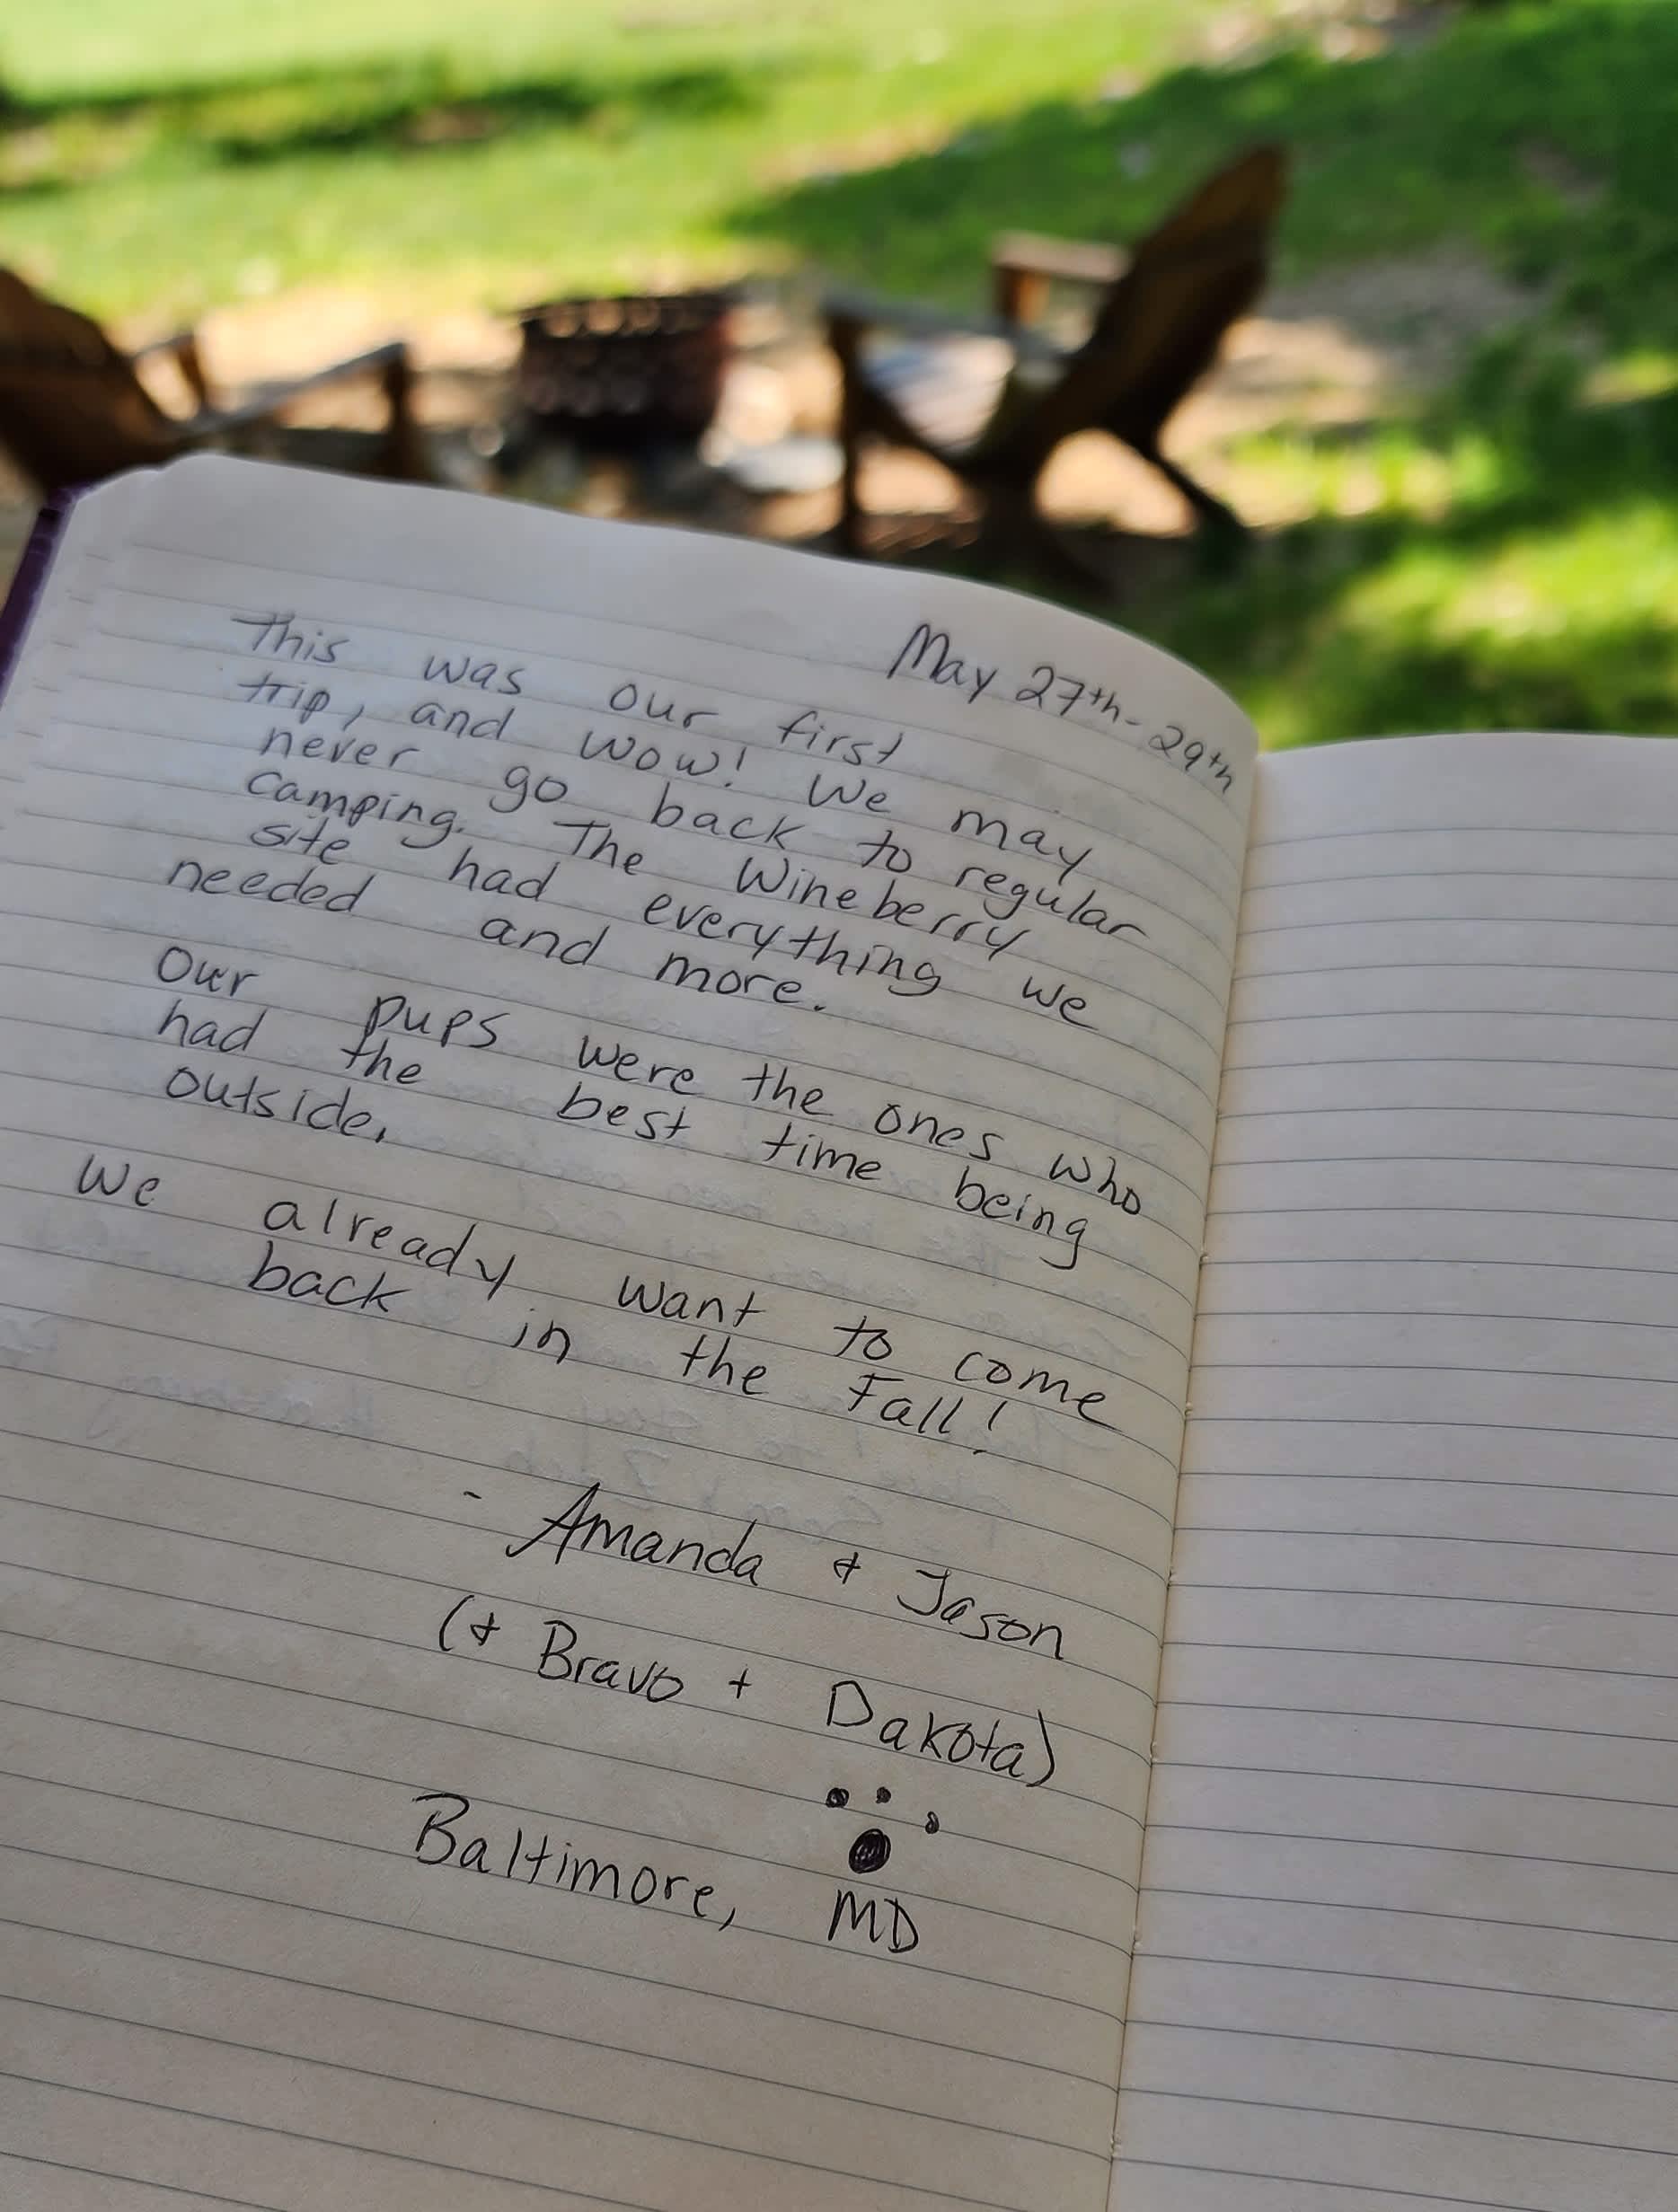 May 27th-29th
This was our first
trip, and wow! We may
never go back to regular
camping. The Wineberry
site had everything we
needed and more.
Our pups were the ones who
had the best time being
outside.
We already want to come
back in the Fall!
- Amanda & Jason
(& Bravo + Dakota)
Baltimore, MD